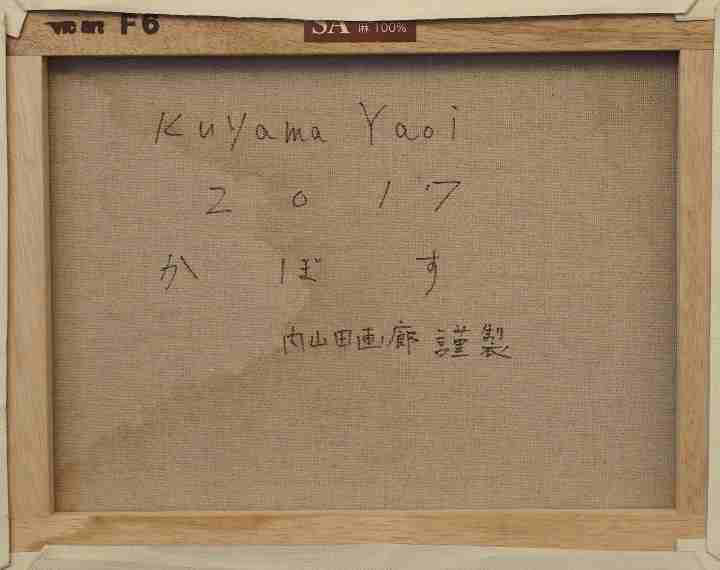 vic art F6
SA 麻 100%
Kuyama Yaoi
2017
かぼす
内山田画廊 謹製